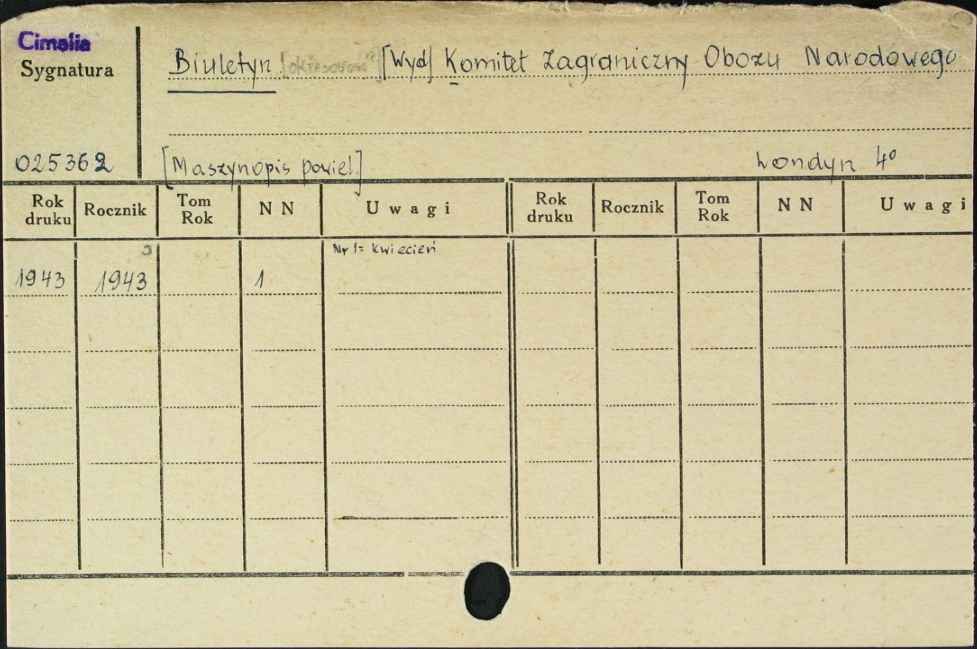 Cimelia
Sygnatura
Biuletyn [Wyd] Komitet Zagraniczny Obozu Narodowego
025362 [Maszynopis powiel.] Londyn 4º
Rok druku Rocznik Tom Rok NN Uwagi Rok druku Rocznik Tom Rok NN Uwagi
Nr 1= kwiecień
1943 1943 1